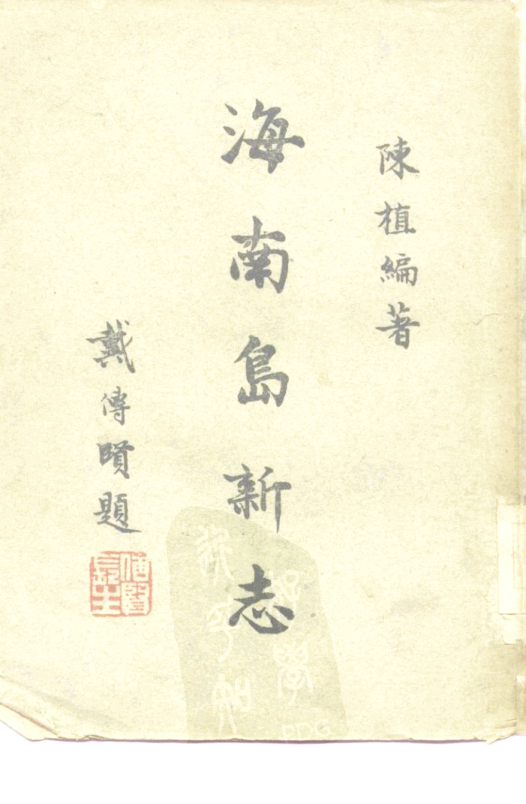 陳植編著
海南島新志
戴傳賢題
PDG